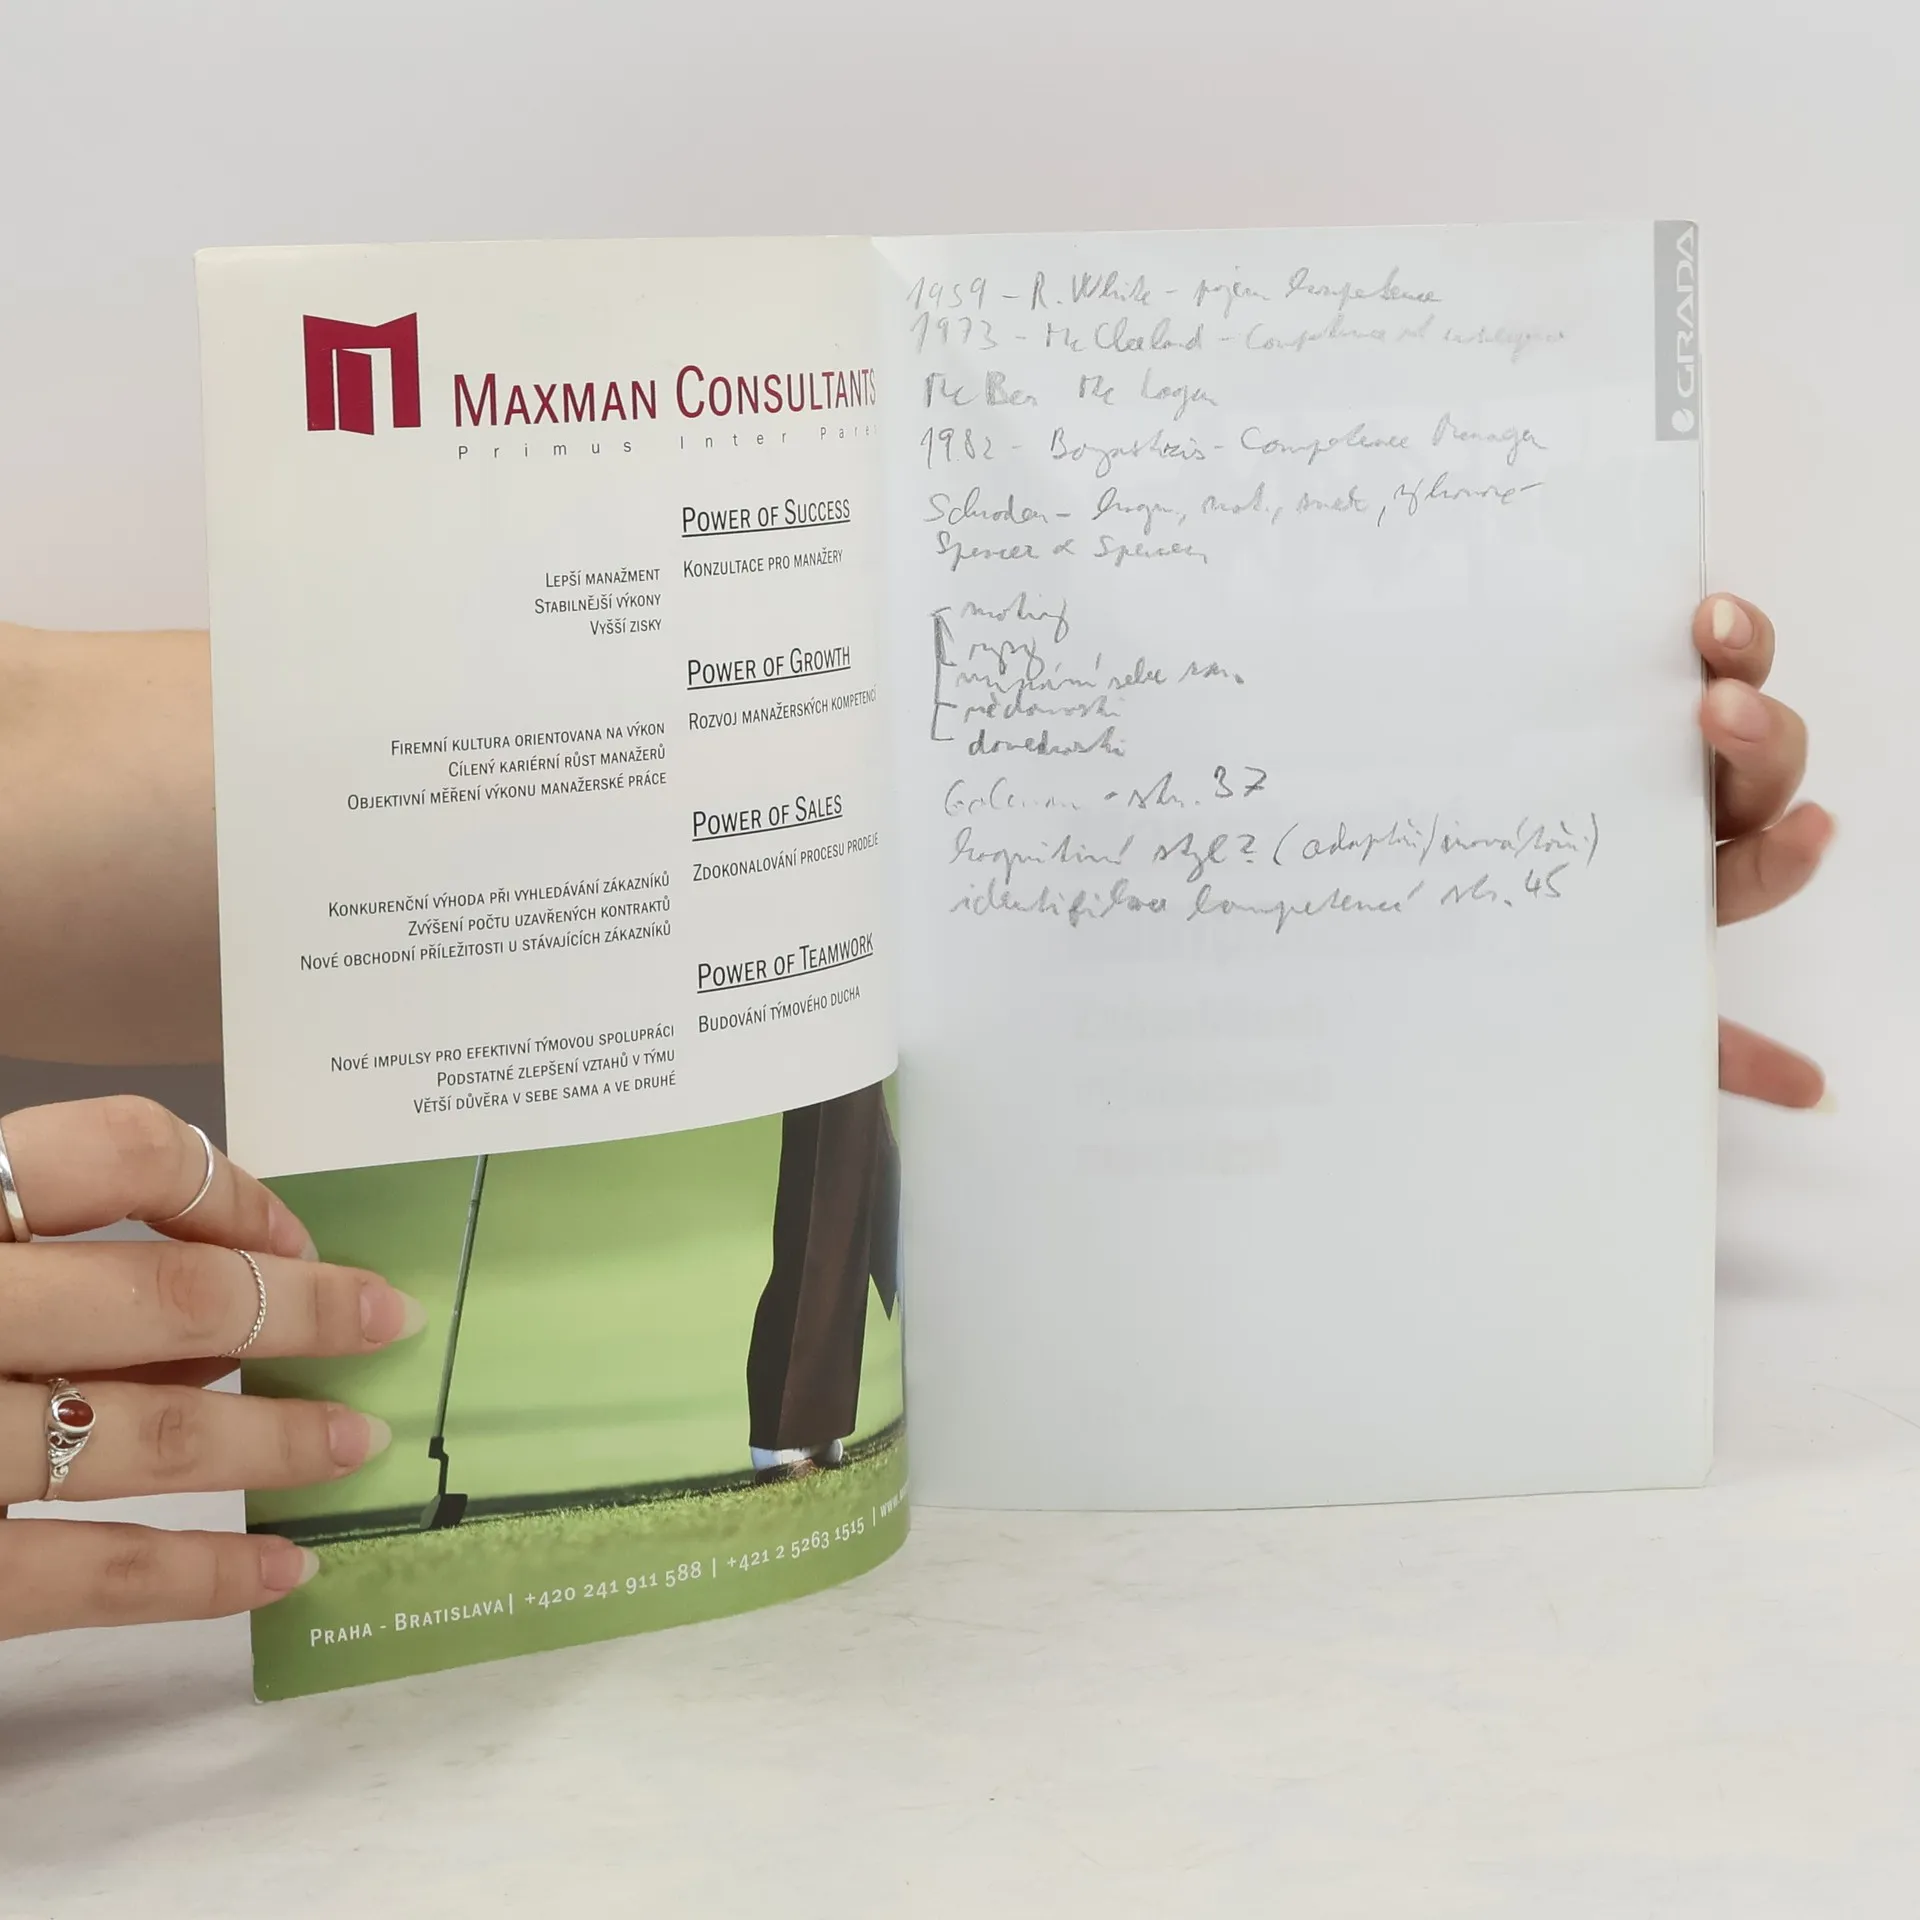 MAXMAN CONSULTANTS
Primus Inter Pare
POWER OF SUCCESS
KONZULTACE PRO MANAŽERY
LEPŠÍ MANAŽMENT
STABILNĚJŠÍ VÝKONY
VYŠŠÍ ZISKY
POWER OF GROWTH
ROZVOJ MANAŽERSKÝCH KOMPETENCÍ
FIREMNÍ KULTURA ORIENTOVANA NA VÝKON
CÍLENÝ KARIÉRNÍ RŮST MANAŽERŮ
OBJEKTIVNÍ MĚŘENÍ VÝKONU MANAŽERSKÉ PRÁCE
POWER OF SALES
ZDOKONALOVÁNÍ PROCESU PRODEJE
KONKURENČNÍ VÝHODA PŘI VYHLEDÁVÁNÍ ZÁKAZNÍKŮ
ZVÝŠENÍ POČTU UZAVŘENÝCH KONTRAKTŮ
NOVÉ OBCHODNÍ PŘÍLEŽITOSTI U STÁVAJÍCÍCH ZÁKAZNÍKŮ
POWER OF TEAMWORK
BUDOVÁNÍ TÝMOVÉHO DUCHA
NOVÉ IMPULSY PRO EFEKTIVNÍ TÝMOVOU SPOLUPRÁCI
PODSTATNÉ ZLEPŠENÍ VZTAHŮ V TÝMU
VĚTŠÍ DŮVĚRA V SEBE SAMA A VE DRUHÉ
PRAHA - BRATISLAVA | +420 241 911 588 | +421 2 5263 1515 | www.
GRADA
1959 - R. White - pojem kompetence
1973 - Mc Clelland - Competence
Mc Ber Mc Lagan
1982 - Boyatzis - Competence Manager
Schroder - kogn., mot., směr., výkonové
Spencer & Spencer
motivy
rysy
vnímání sebe sam.
vědomosti
dovednosti
Goleman - str. 37
kognitivní styl? (adaptční/inovátoři)
identifikace kompetencí str. 45